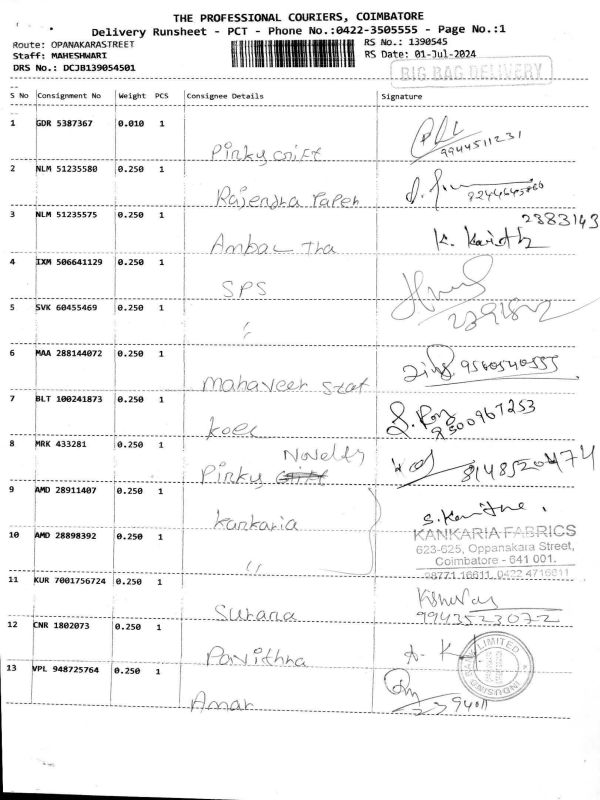 THE PROFESSIONAL COURIERS, COIMBATORE
Delivery Runsheet - PCT - Phone No.:0422-3505555 - Page No.:1
Route: OPANAKARASTREET RS No.: 1390545
Staff: MAHESHWARI RS Date: 01-Jul-2024
DRS No.: DCJB139054501
BIG BAG DELIVERY
S No Consignment No Weight PCS Consignee Details Signature
1 GDR 5387367 0.010 1
Pinky Grift 9944511231
2 NLM 51235580 0.250 1
Rajendra Paper
3 NLM 51235575 0.250 1 2383143
Ambac Tha K. Karoth
4 IXM 506641129 0.250 1
SPS
5 SVK 60455469 0.250 1
"
6 MAA 288144072 0.250 1
Mahaveer Stat 9560540555
7 BLT 100241873 0.250 1
koel 9500967253
8 MRK 433281 0.250 1 Novelty
Pinky 8148520474
9 AMD 28911407 0.250 1
kankaria
10 AMD 28898392 0.250 1 KANKARIA FABRICS
623-625, Oppanakara Street,
" Coimbatore - 641 001.
98771 16611, 0422 4716611
11 KUR 7001756724 0.250 1
Surana 9943523072
12 CNR 1802073 0.250 1
Pavithra
13 VPL 948725764 0.250 1
INDUSIND BANK LIMITED
Amar